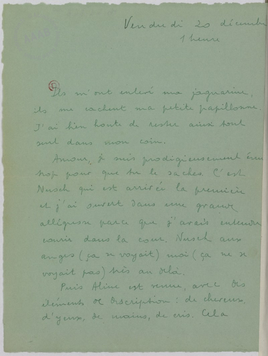 Vendredi 20 décembre
1 heure
Ils m'ont enlevé ma jaguarine,
ils me cachent ma petite papillonne.
J'ai bien honte de rester ainsi tout
seul dans mon coin.
Amour, je suis prodigieusement
trop pour que tu le saches. C'est
Nusch qui est arrivée la première
et j'ai ouvert dans une grande
parce que j'avais entendu
courir dans la cour. Nusch aux
anges (ça se voyait) moi (ça ne se
voyait pas) très au delà.
Puis Aline est venue, avec des
éléments de description : de cheveux
d'yeux, de mains, de cris. Cela